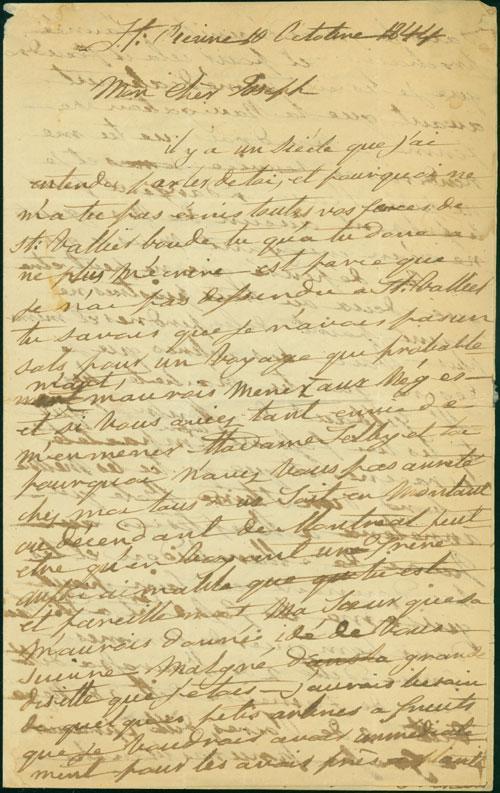 St: Pierre 10 Octobre 1844
Mon Cher Joseph
il y a un siécle que j'ai
entendu parler de toi, et pourquoi ne
m'a tu pas écris toutes vos farces de
St: Vallier boude tu qu'a tu donc a
ne plus M'ecrire est parce que
je n'ai pas dessendu a St: Vallier
tu savais que je n'avais pas un
sols pour un voyage qui probable
ment mauroit Menez aux
et si vous aviez tant envie de
m'enmener Madame Selby et toi
pourquoi n'avez Vous pas arreté
chez ma tous soit en Montant
ou décendant de Montreal peut
etre qu'en trouvant une frere
aussi aimable que que tu est
et pareillement Ma Sœur que sa
m'aurois donné idé de Vous
suivre Malgré la grande
disette que j'etais - j'aurois besoin
de quelques petis arbres a fruits
que je voudrois avoir immédiate
ment pour les avoir près a